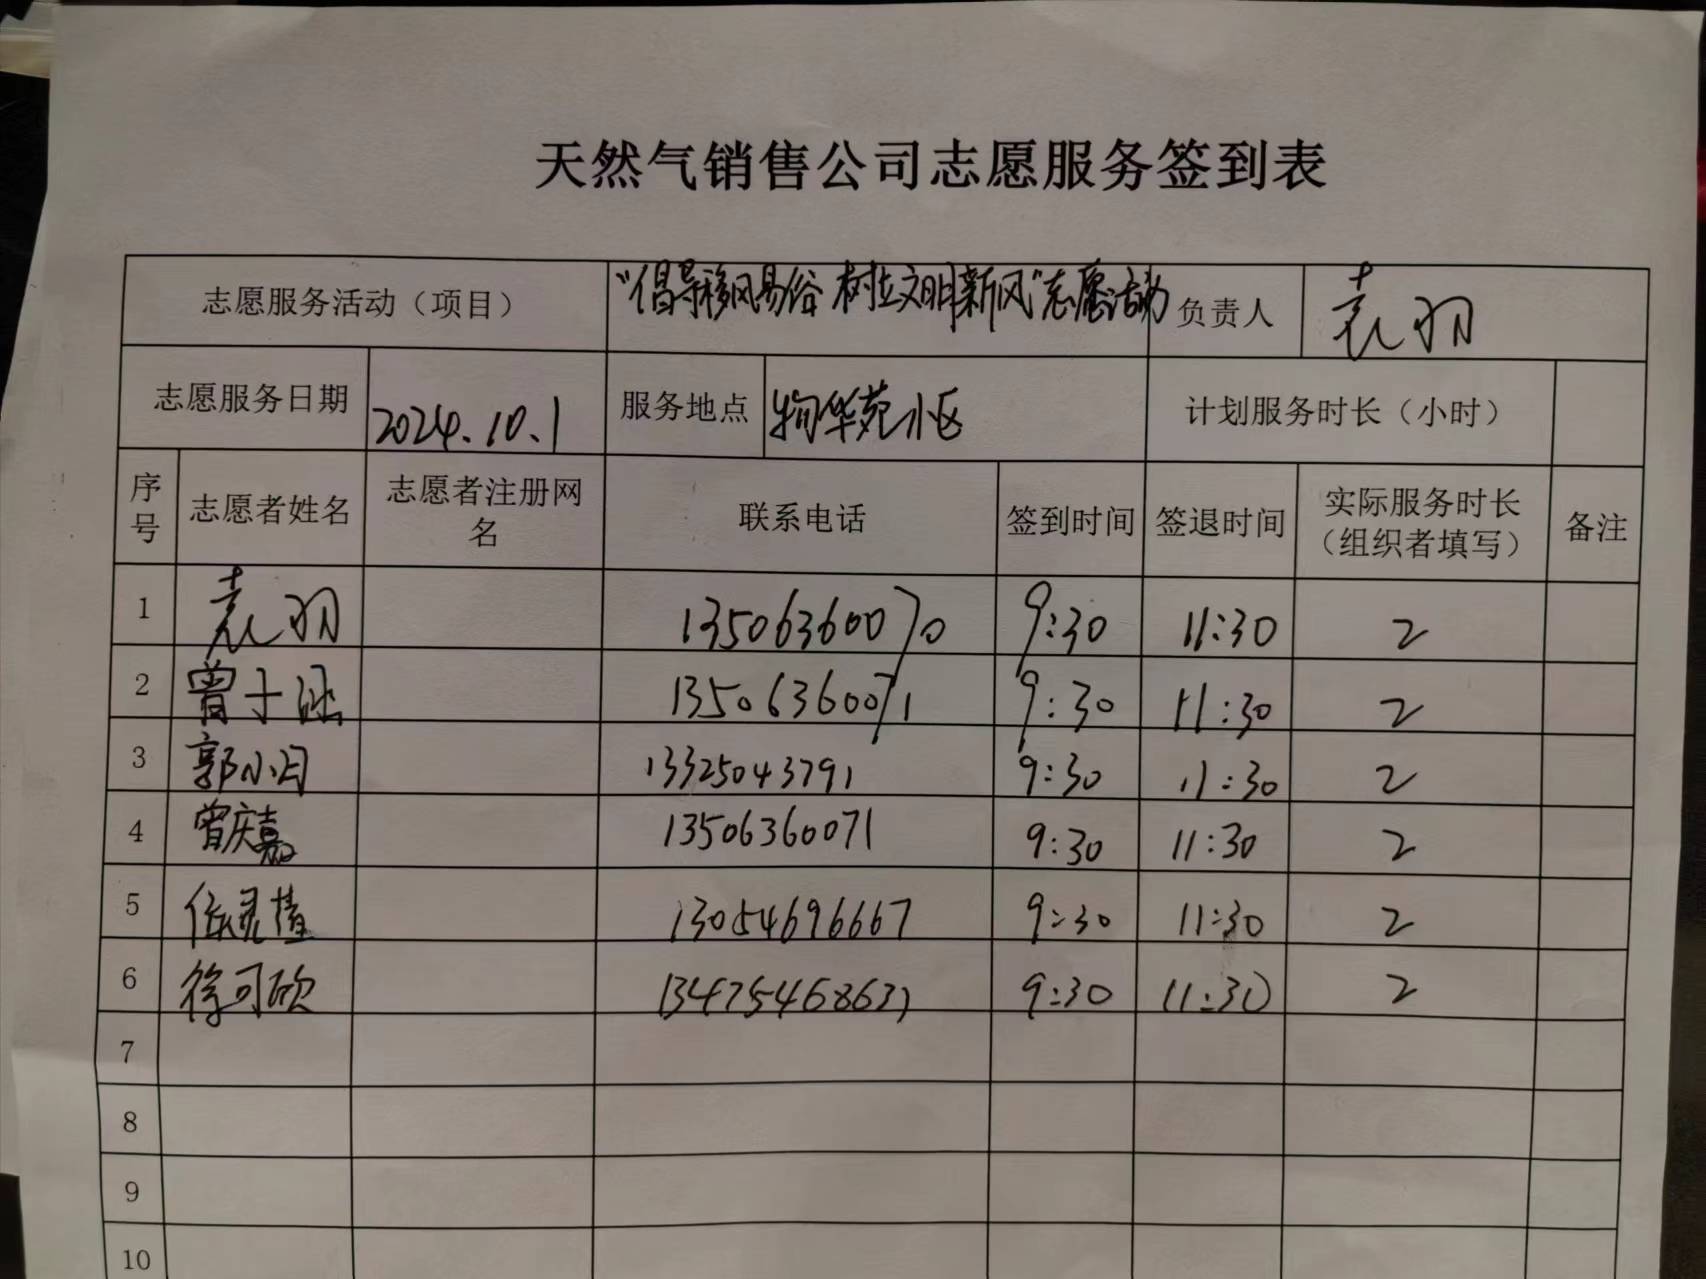 天然气销售公司志愿服务签到表
志愿服务活动（项目） “倡导移风易俗 树立文明新风”志愿活动 负责人 袁羽
志愿服务日期 2024.10.1 服务地点 物华苑小区 计划服务时长（小时）
序号 志愿者姓名 志愿者注册网名 联系电话 签到时间 签退时间 实际服务时长（组织者填写） 备注
1 袁羽 13506360070 9:30 11:30 2
2 曾于 13506360071 9:30 11:30 2
3 郭小月 13325043791 9:30 11:30 2
4 曾庆嘉 13506360071 9:30 11:30 2
5 13054696667 9:30 11:30 2
6 徐可欣 9:30 11:30 2
7
8
9
10